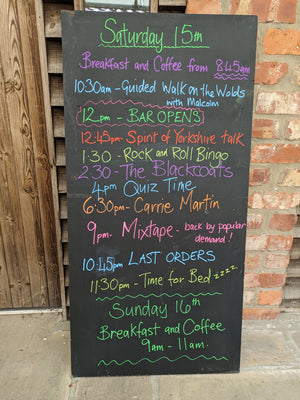 Saturday 15th
Breakfast and Coffee from 8:45am
10:30am - Guided Walk on the Wolds
with Malcolm
12pm - BAR OPENS
12:45pm - Spirit of Yorkshire talk
1:30 - Rock and Roll Bingo
2:30 - The Blackcoats
4pm Quiz Time
6:30pm - Carrie Martin
9pm - Mixtape - back by popular
demand!
10:45pm LAST ORDERS
11:30pm - Time for Bed zzzz
Sunday 16th
Breakfast and Coffee
9am - 11am.